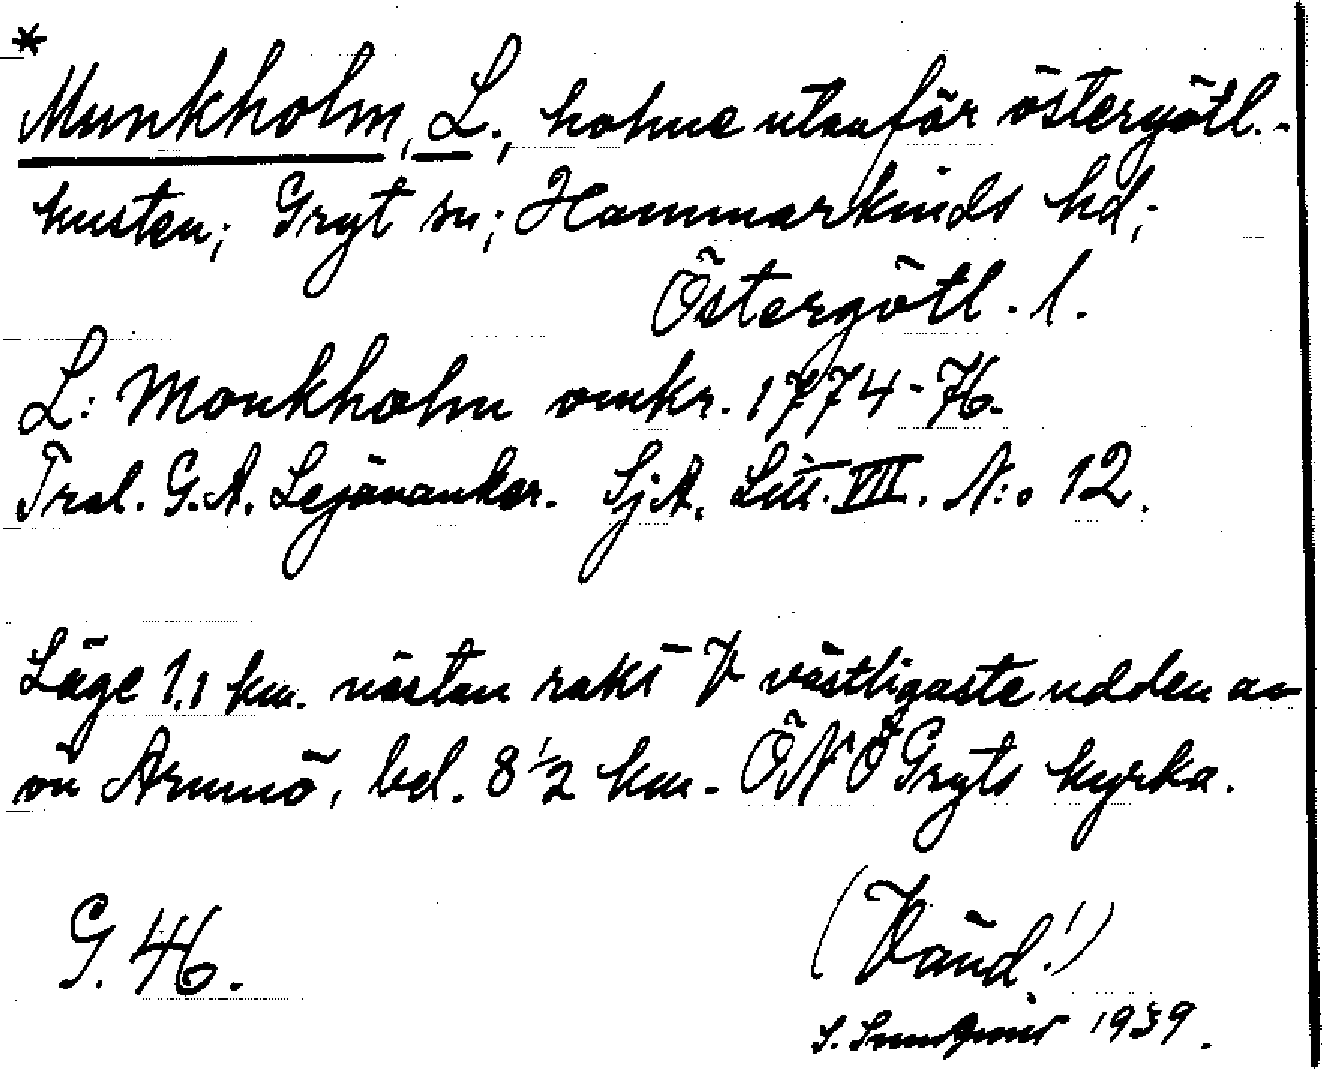 *
Munkholm, L., holme utanför östergötl.-
kusten; Gryt sn; Hammarkinds hd;
Östergötl. l.
L: Monkholm omkr. 1774-76.
Trol. G.A. Lejonanker. SjA. Litt. VII. N:o 12.
Läge 1,1 km. nästan rakt V västligaste udden av
ön Ämmö, bel. 8 1/2 km. ÖNÖ Gryts kyrka.
G. 46.
(Vänd!)
S. Sundqvist 1939.